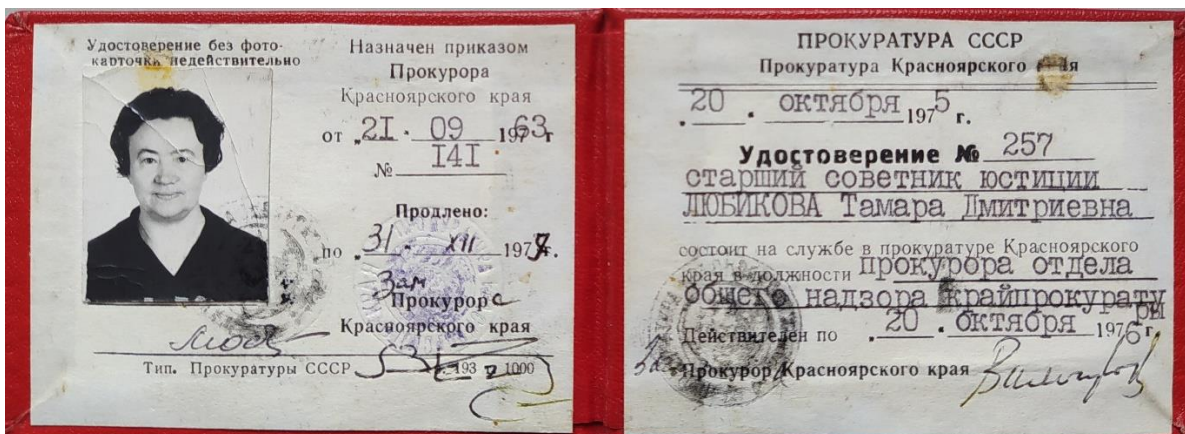 Удостоверение без фото-
карточки недействительно
Назначен приказом
Прокурора
Красноярского края
от „2I. 09 19763г
№ I4I
Продлено:
по „31. XII 1978г.
Зам
Прокурора
Красноярского края
Тип. Прокуратуры СССР
1000
ПРОКУРАТУРА СССР
Прокуратура Красноярского края
„20. октября 1975 г.
Удостоверение № 257
старший советник юстиции
ЛЮБИКОВА Тамара Дмитриевна
состоит на службе в прокуратуре Красноярского
края в должности прокурора отдела
общего надзора Крайпрокурату
ры
Действителен по „20. октября 1976 г.
Прокурор Красноярского края